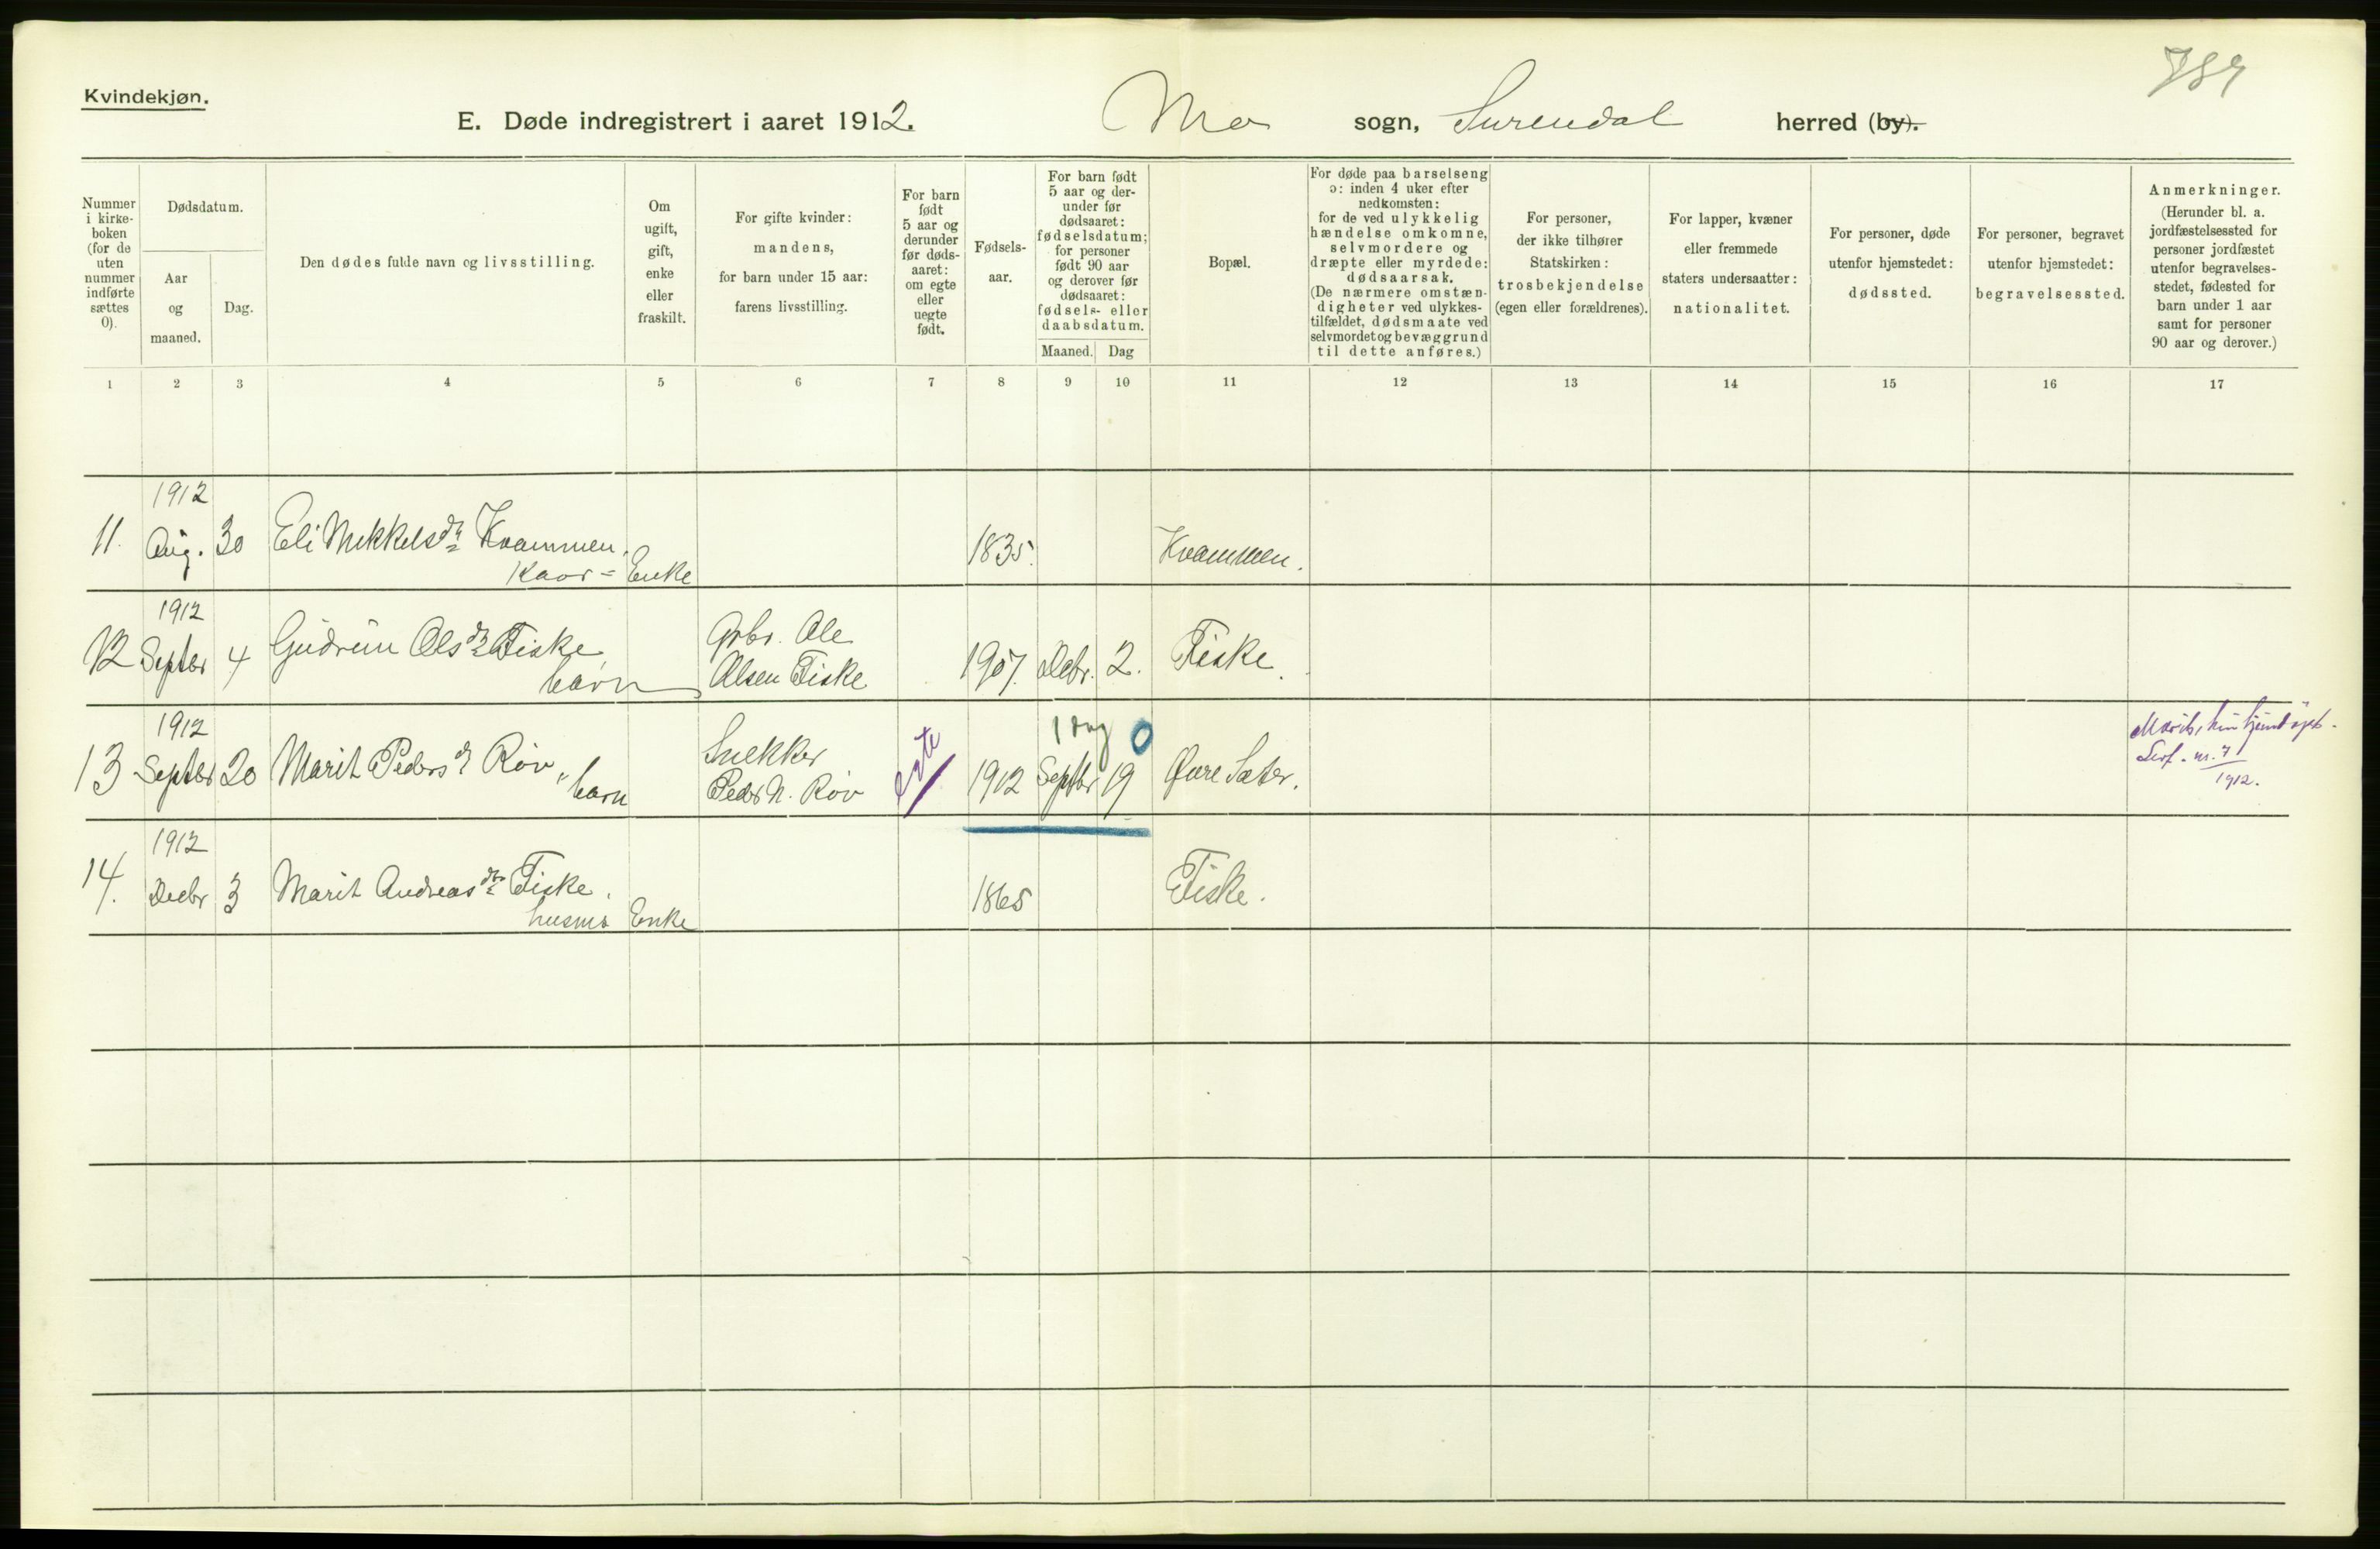 789
Kvindekjøn.
E. Døde indregistrert i aaret 1912. Mo sogn, Surendal herred (by).
Nummer i kirkeboken (for de uten nummer indførte sættes 0).
Dødsdatum.
Aar og maaned.
Dag.
Den dødes fulde navn og livsstilling.
Om ugift, gift, enke eller fraskilt.
For gifte kvinder: mandens, for barn under 15 aar: farens livsstilling.
For barn født 5 aar og derunder før dødsaaret: om egte eller uegte født.
Fødselsaar.
For barn født 5 aar og derunder før dødsaaret: fødselsdatum; for personer født 90 aar og derover før dødsaaret: fødsels- eller daabsdatum.
Maaned. Dag
Bopæl.
For døde paa barselseng ɔ: inden 4 uker efter nedkomsten: for de ved ulykkelig hændelse omkomne, selvmordere og dræpte eller myrdede: dødsaarsak. (De nærmere omstændigheter ved ulykkestilfældet, dødsmaate ved selvmordet og bevæggrund til dette anføres.)
For personer, der ikke tilhører Statskirken: trosbekjendelse (egen eller forældrenes).
For lapper, kvæner eller fremmede staters undersaatter: nationalitet.
For personer, døde utenfor hjemstedet: dødssted.
For personer, begravet utenfor hjemstedet: begravelsessted.
Anmerkninger. (Herunder bl. a. jordfæstelsessted for personer jordfæstet utenfor begravelsesstedet, fødested for barn under 1 aar samt for personer 90 aar og derover.)
1 2 3 4 5 6 7 8 9 10 11 12 13 14 15 16 17
1912
11. Aug. 30 Eli Mikkelsdr Kvammen, 1835. Kvammen.
Kaar = Enke
1912 Grbr. Ole
12 Septbr 4 Gudrun Olsdr Fiske, 1907. Debr. 2. Fiske.
barn Olsen Fiske
1912 Snekker 1 dag 0
13 Septbr 20 Marit Pedersdr Røv, Peder N. Røv egte 1912 Septbr 19 Øvre Sæter.
barn
Marit, hjemdøpt.
nr. 7
1912.
1912
14. Decbr 3 Marit Andreasdr Fiske. 1865 Fiske.
husm Enke